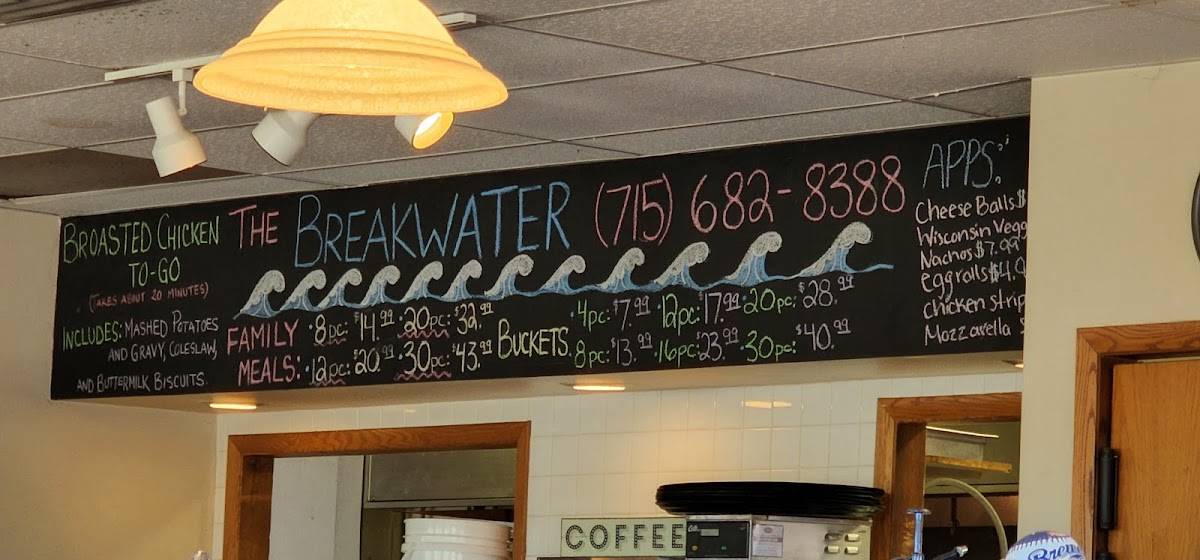 BROASTED CHICKEN
TO-GO
(TAKES ABOUT 20 MINUTES)
INCLUDES: MASHED POTATOES
AND GRAVY, COLESLAW,
AND BUTTERMILK BISCUITS.
THE BREAKWATER (715) 682-8388
FAMILY MEALS:
• 8pc: $14.99 • 20pc: $32.99
• 12pc: $20.99 • 30pc: $43.99
BUCKETS
• 4pc: $7.99 • 12pc: $17.99 • 20pc: $28.99
8pc: $13.99 • 16pc: $23.99 • 30pc: $40.99
APPS:
Cheese Balls $
Wisconsin Vegg
Nachos $7.99
eggrolls $4.9
chicken strip
Mozzarella S
COFFEE
Brew